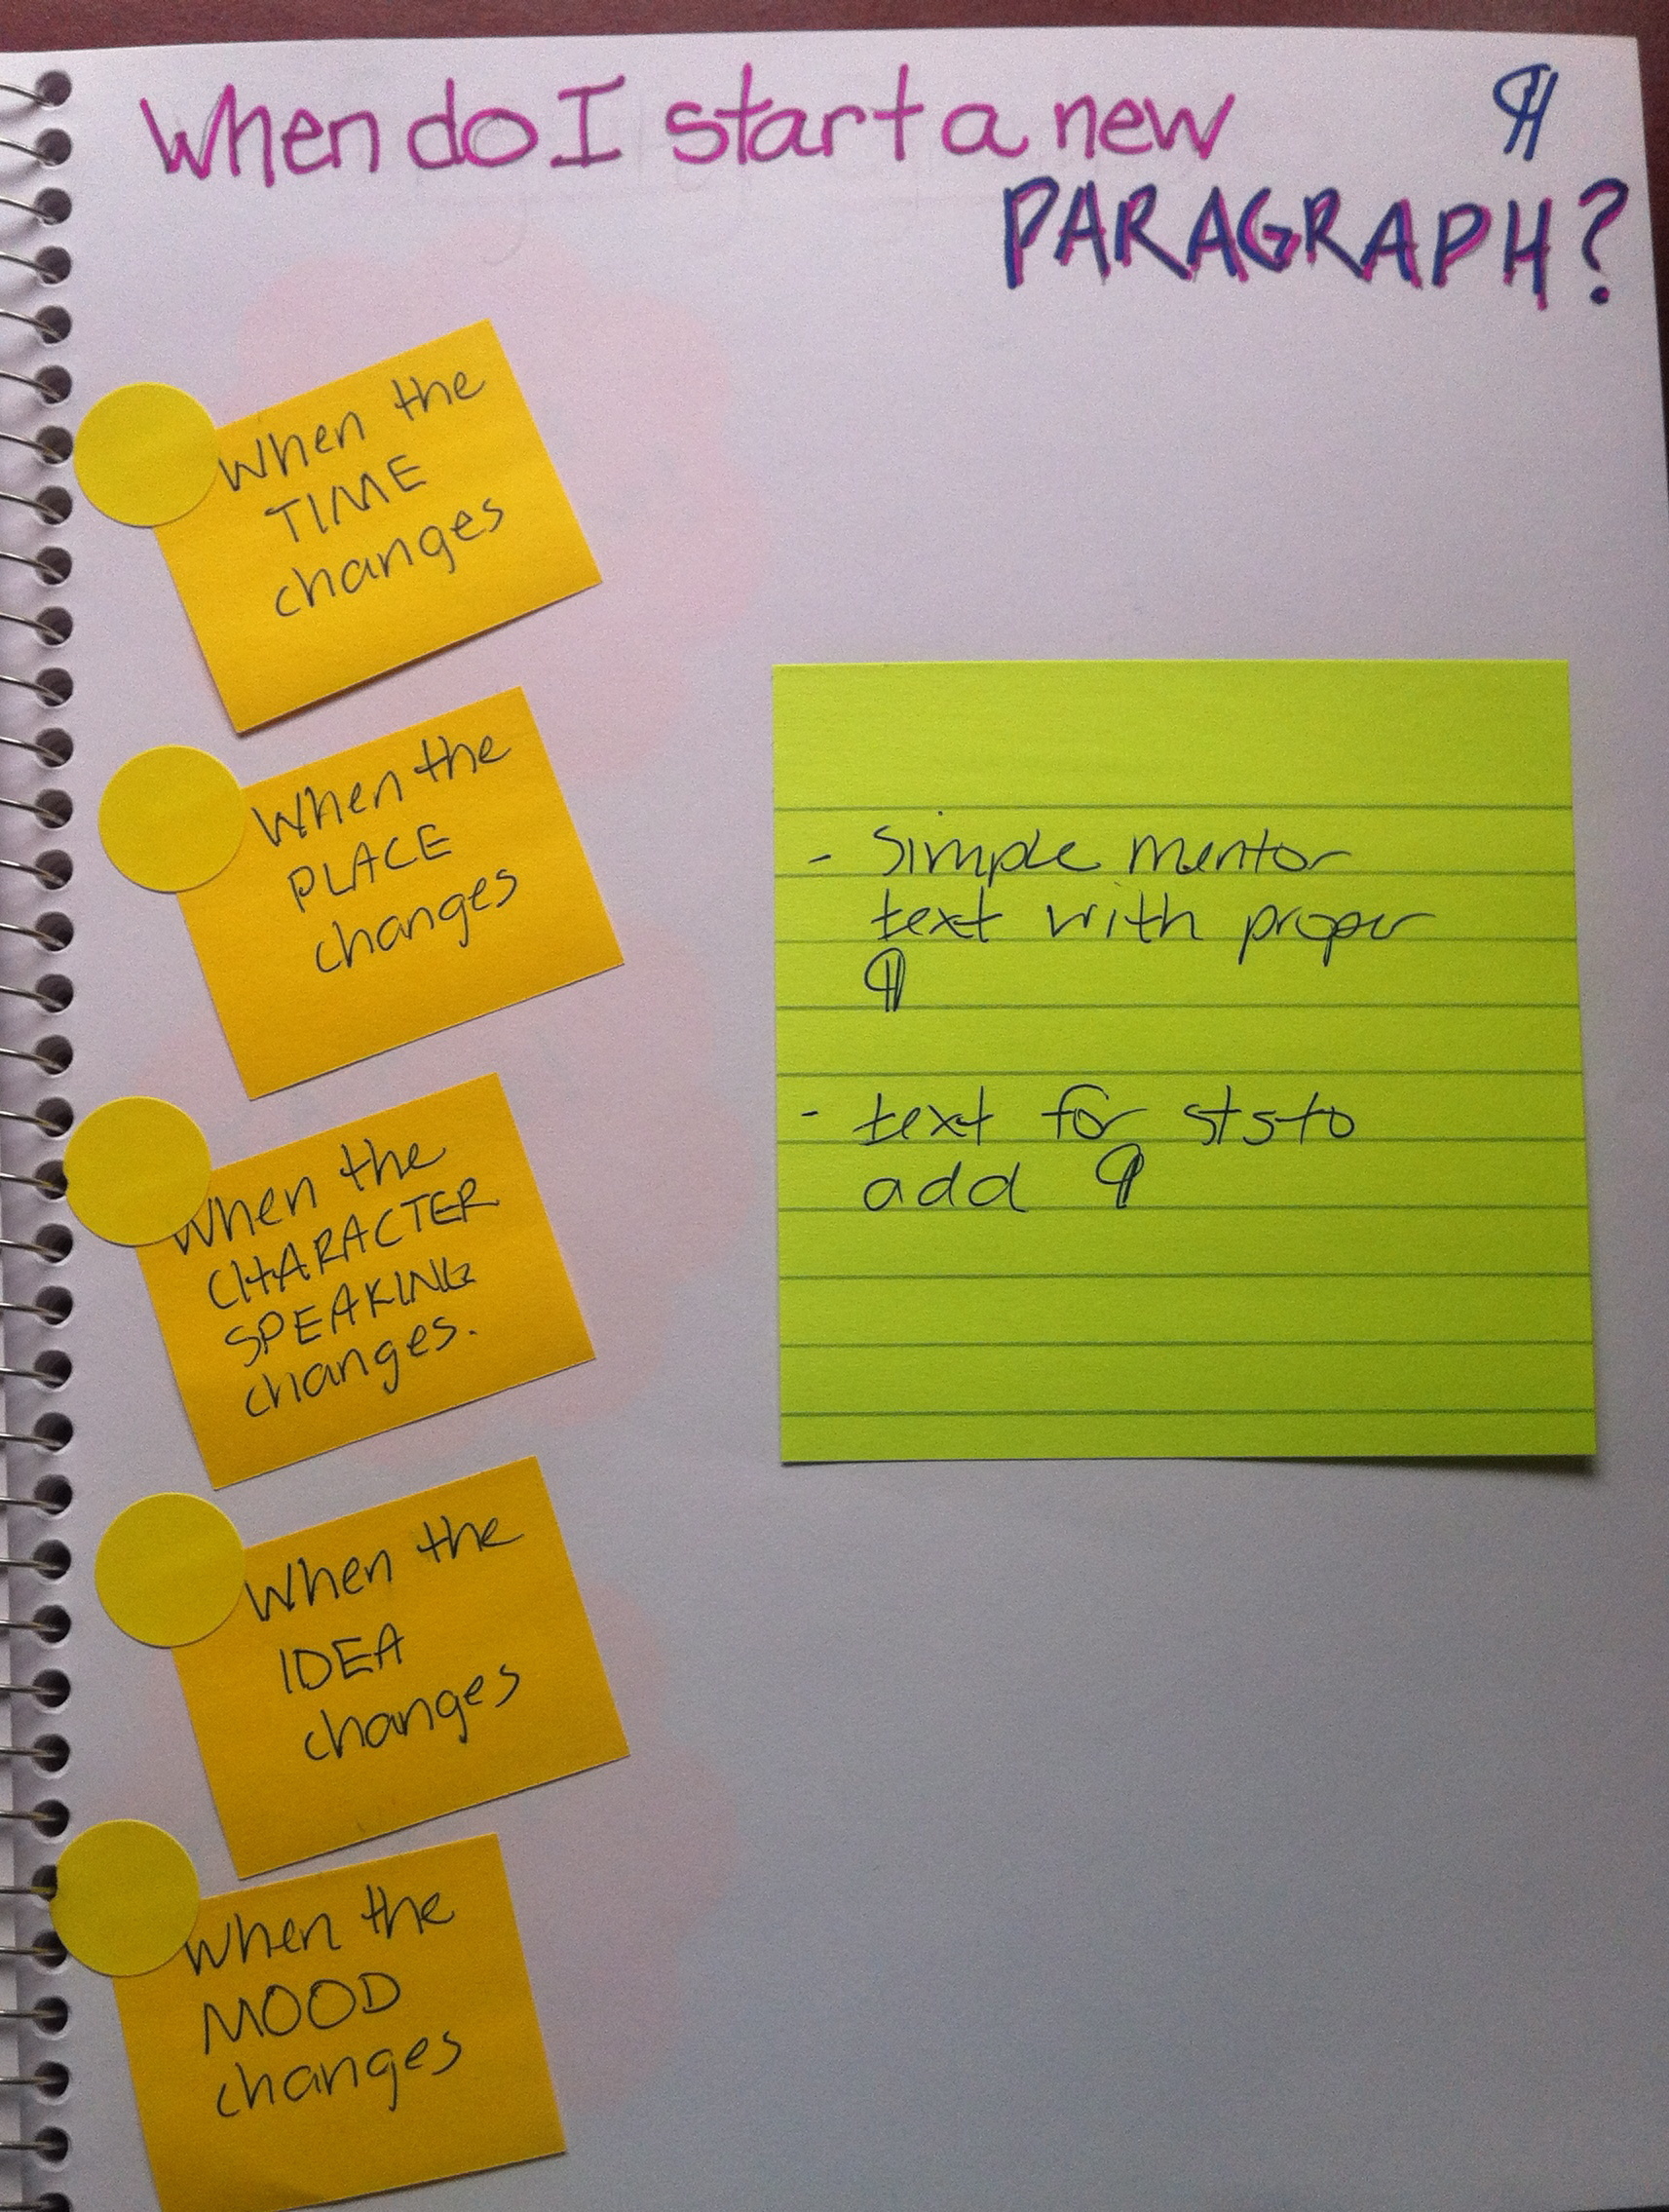 When do I start a new ¶
PARAGRAPH?
When the
TIME
changes
When the
PLACE
changes
When the
CHARACTER
SPEAKING
changes.
When the
IDEA
changes
When the
MOOD
changes
- Simple mentor
text with proper
¶
- text for sts to
add ¶